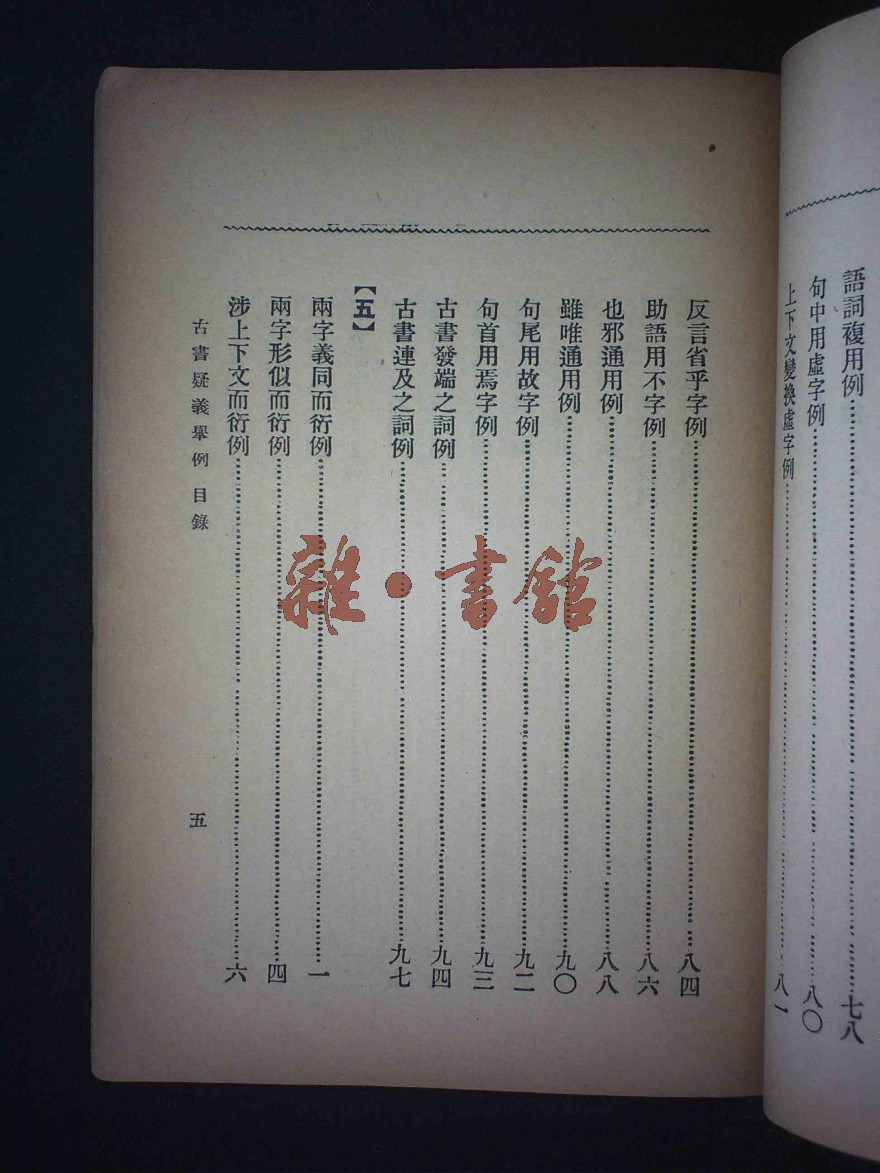 語詞複用例……七八
句中用虛字例……八〇
上下文變換虛字例……八一
反言省乎字例……八四
助語用不字例……八六
也邪通用例……八八
雖唯通用例……九〇
句尾用故字例……九二
句首用焉字例……九三
古書發端之詞例……九四
古書連及之詞例……九七
【五】
兩字義同而衍例……一
兩字形似而衍例……四
涉上下文而衍例……六
古書疑義舉例 目錄
五
雜·書館